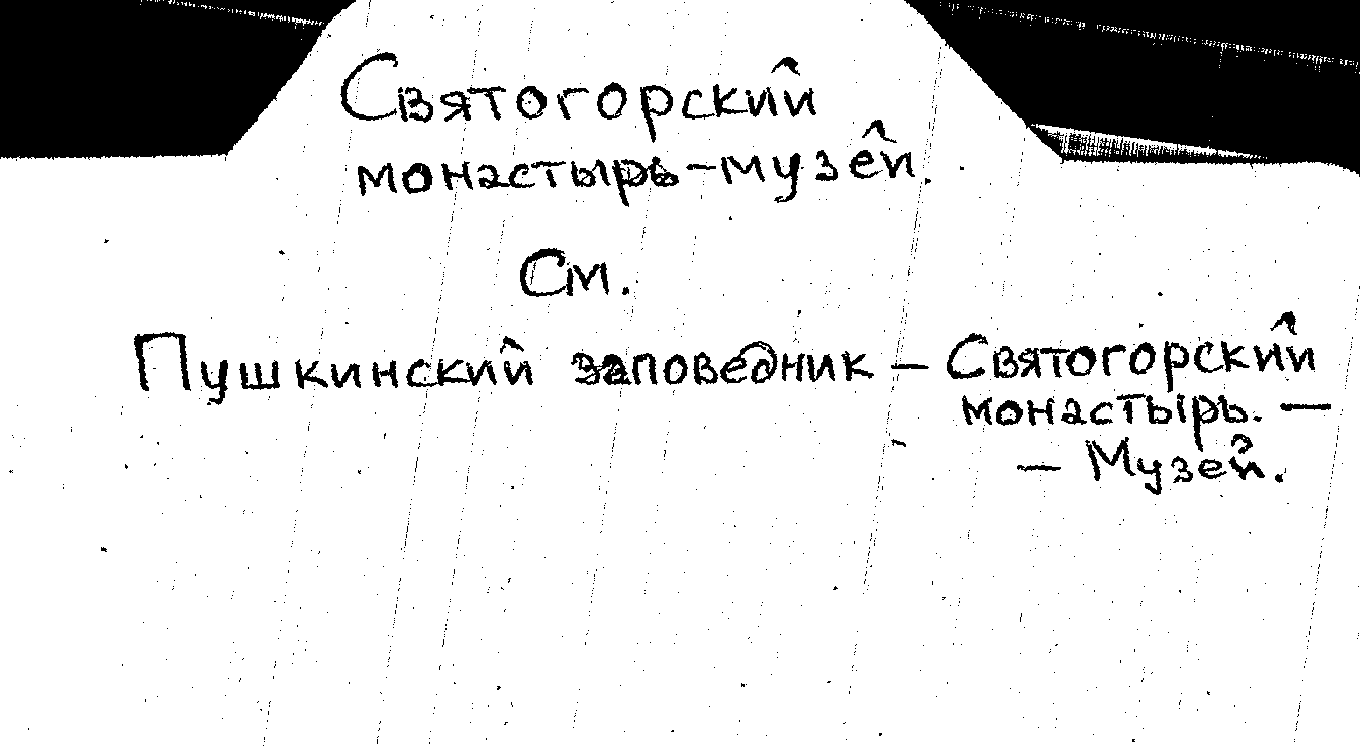 Святогорский
монастырь-музей.
См.
Пушкинский заповедник – Святогорский
монастырь. –
– Музей.